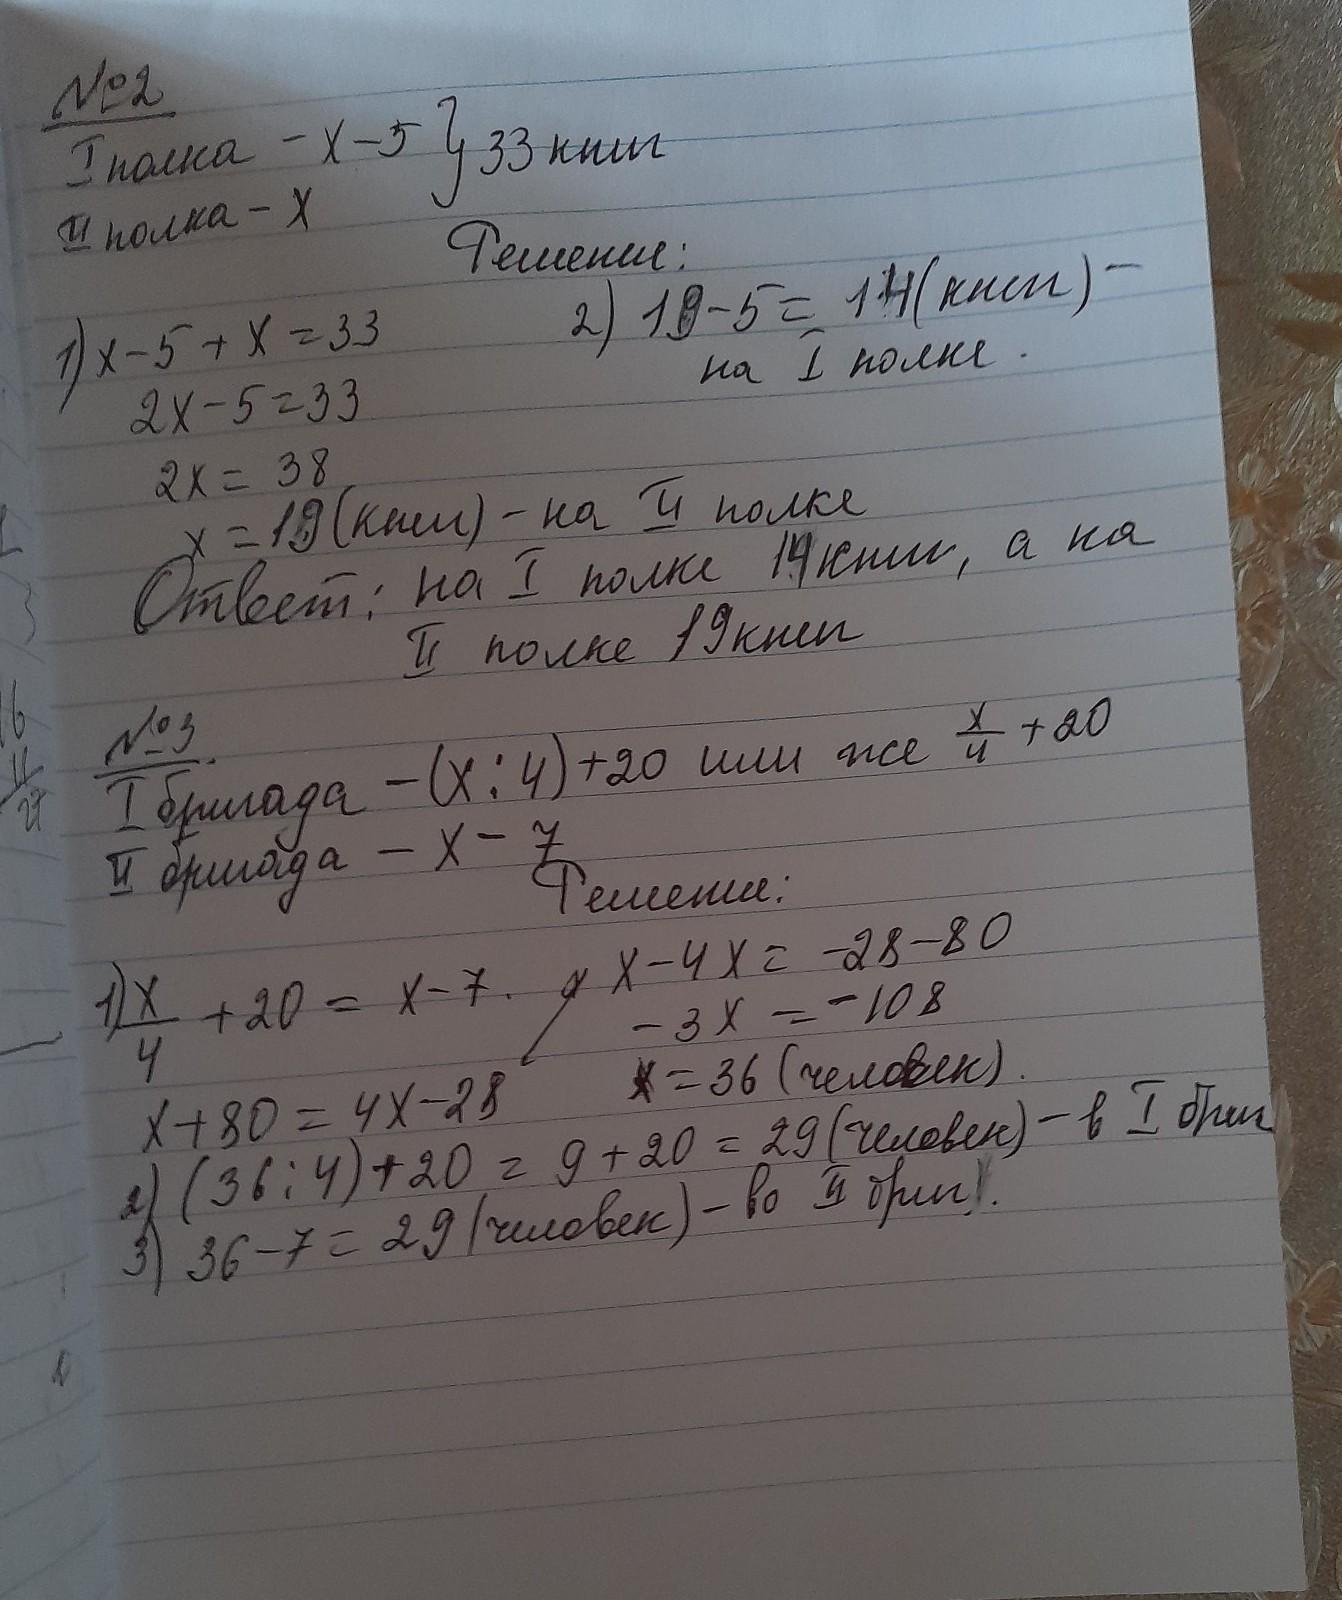 №2
I полка - х-5 } 33 книг
II полка - х
Решение:
1) х-5+х=33
2х-5=33
2х=38
х=19(книг) - на II полке
2) 19-5=14(книг) -
на I полке.
Ответ: на I полке 14 книг, а на
II полке 19 книг
№3.
I бригада - (х:4)+20 или же х/4 +20
II бригада - х-7
Решение:
1) х/4 +20 = х-7.
х+80=4х-28
х-4х=-28-80
-3х=-108
х=36 (человек).
2) (36:4)+20=9+20=29(человек) - в I бриг
3) 36-7=29(человек) - во II бриг.